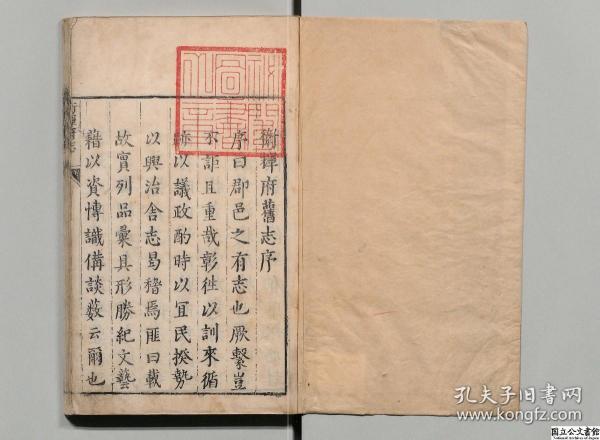 衡輝府舊志序
序曰郡邑之有志也厥繫豈
不詎且重哉彰徃以訓來循
跡以議政酌時以宜民揆勢
以興治舍志曷稽焉匪曰載
故實列品彙具形勝紀文藝
藉以資愽識備談藪云爾也
孔夫子旧书网
www.kongfz.com
国立公文書館
National Archives of Japan